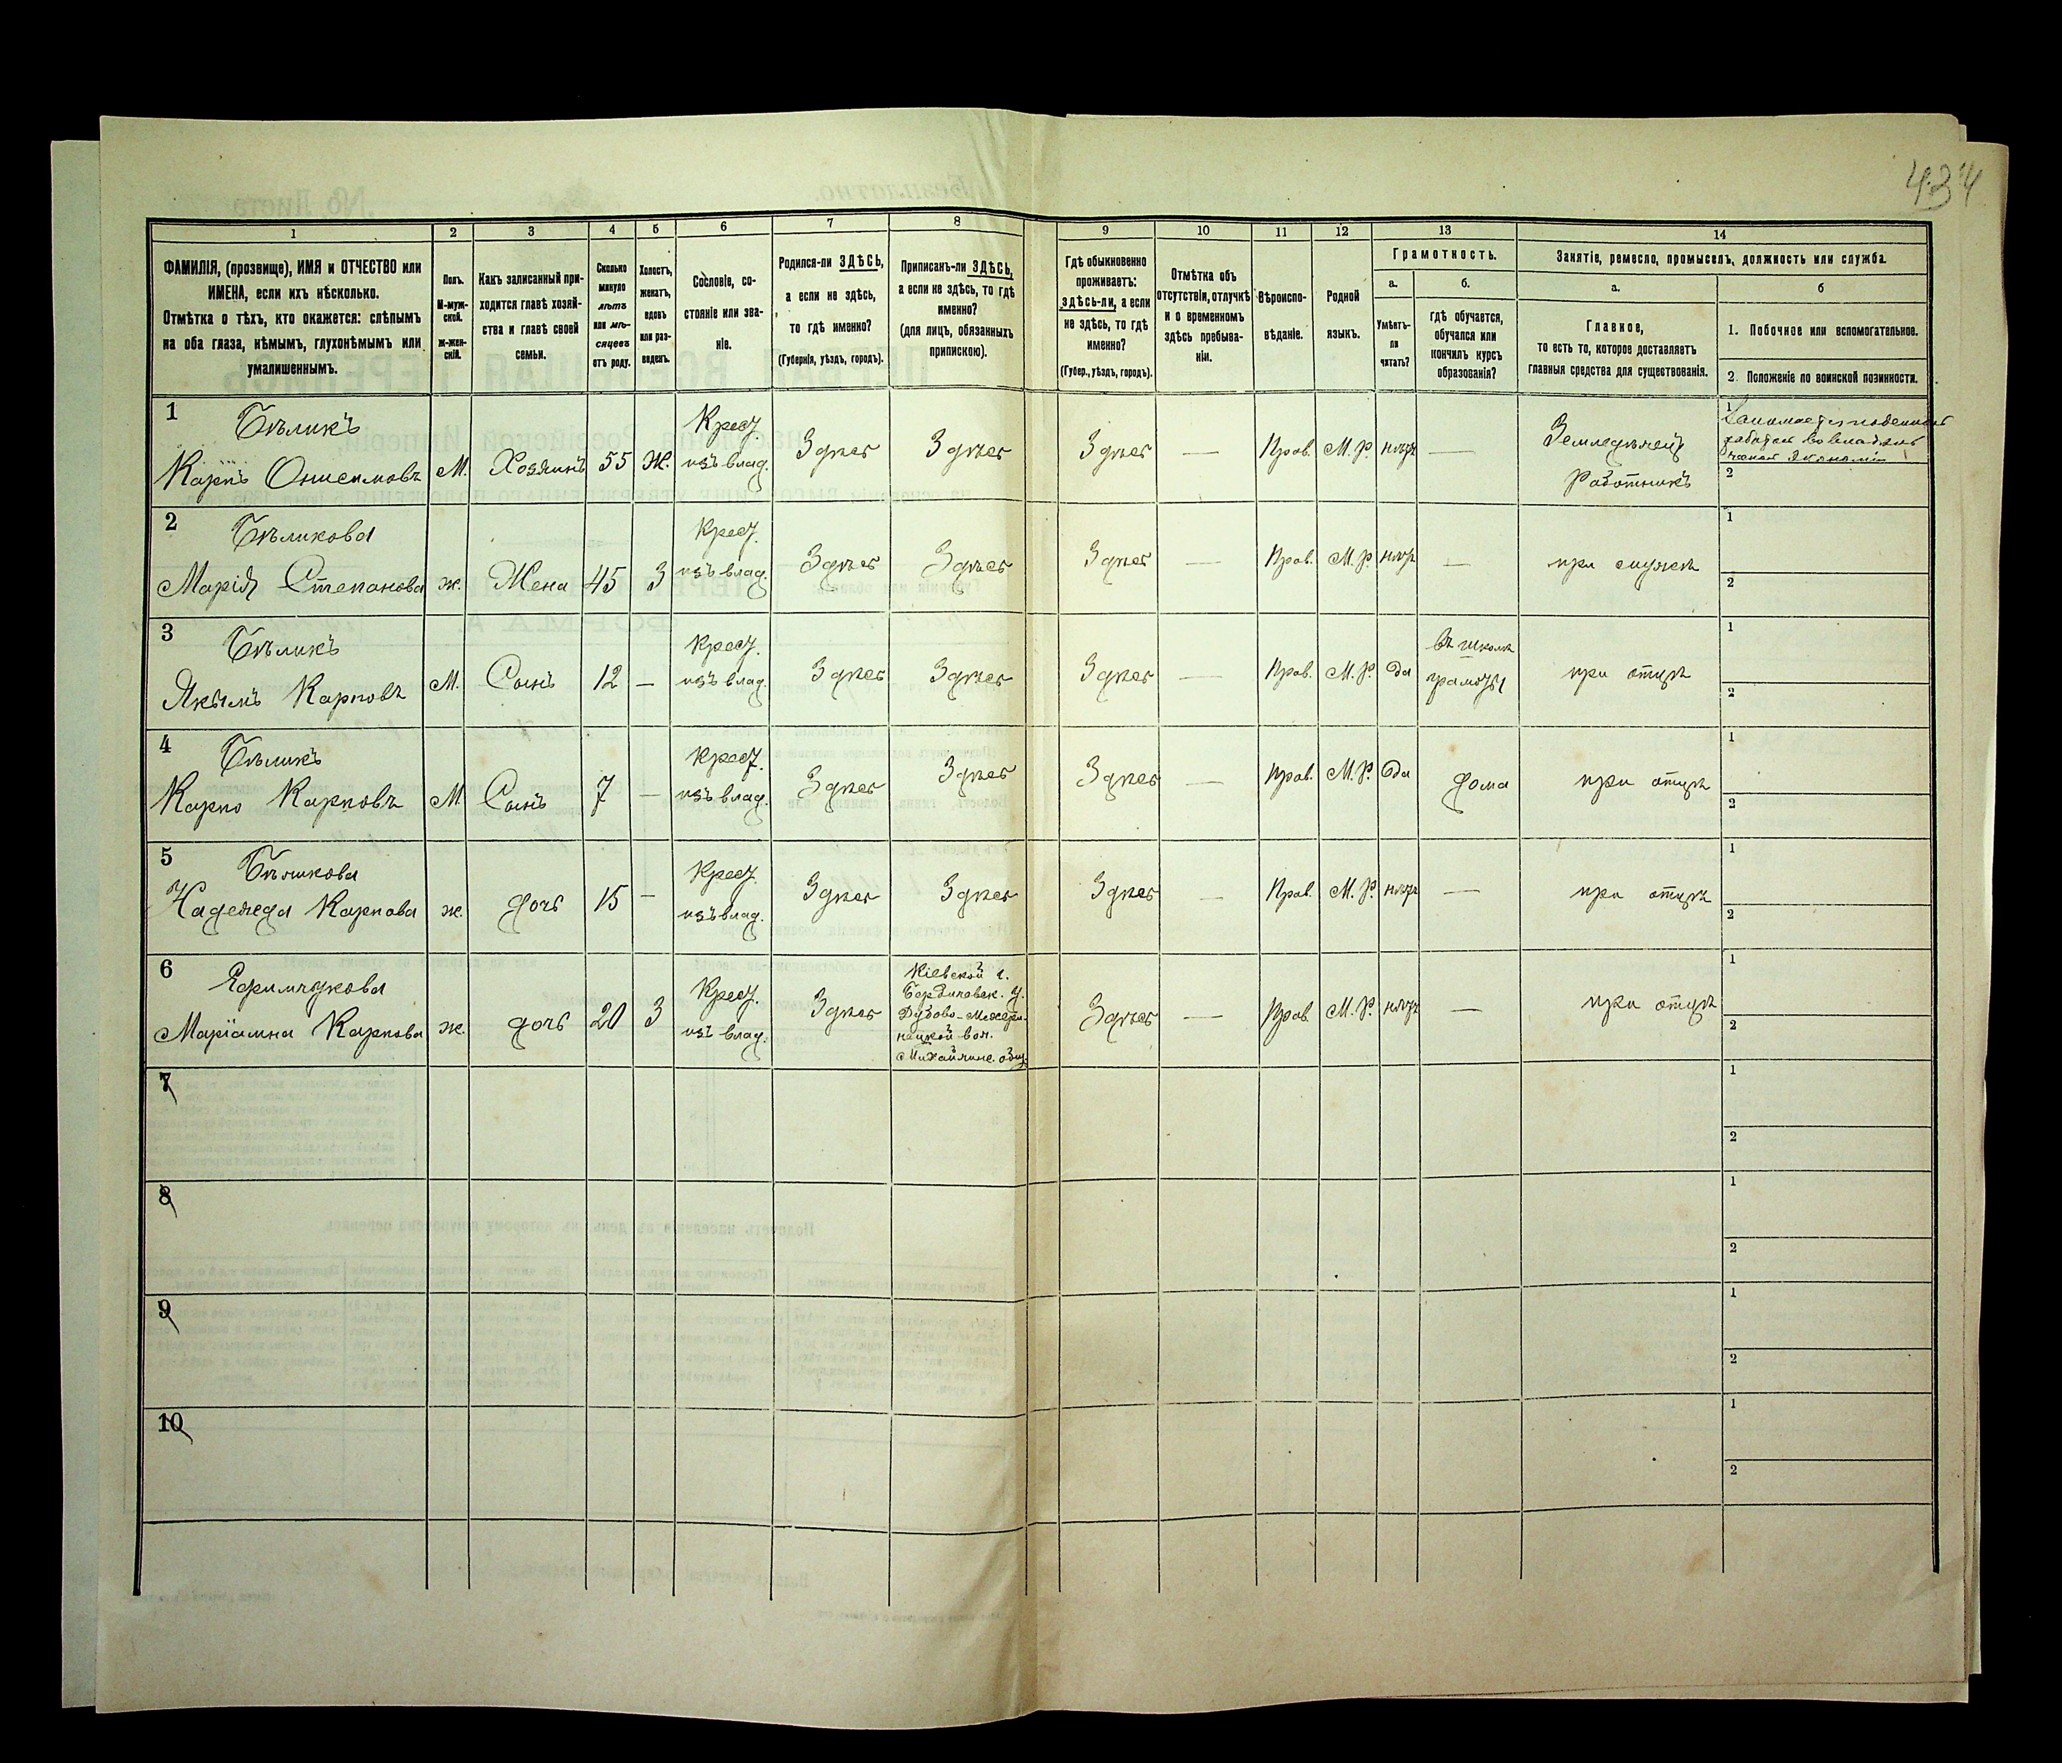 434
1
2
3
4
5
6
7
8
9
10
11
12
13
14
ФАМИЛІЯ, (прозвище), ИМЯ и ОТЧЕСТВО или
ИМЕНА, если ихъ нѣсколько.
Отмѣтка о тѣхъ, кто окажется: слѣпымъ
на оба глаза, нѣмымъ, глухонѣмымъ или
умалишеннымъ.
Полъ.
М-муж-
ской.
Ж-жен-
скій.
Какъ записанный при-
ходится главѣ хозяй-
ства и главѣ своей
семьи.
Сколько
минуло
лѣтъ
или мѣ-
сяцевъ
отъ роду.
Холостъ,
женатъ,
вдовъ
или раз-
веденъ.
Сословіе, со-
стояніе или зва-
ніе.
Родился-ли ЗДѢСЬ,
а если не здѣсь,
то гдѣ именно?
(Губернія, уѣздъ, городъ).
Приписанъ-ли ЗДѢСЬ,
а если не здѣсь, то гдѣ
именно?
(для лицъ, обязанныхъ
припискою).
Гдѣ обыкновенно
проживаетъ:
здѣсь-ли, а если
не здѣсь, то гдѣ
именно?
(Губер., уѣздъ, городъ).
Отмѣтка объ
отсутствіи, отлучкѣ
и о временномъ
здѣсь пребыва-
ніи.
Вѣроиспо-
вѣданіе.
Родной
языкъ.
Грамотность.
а.
Умѣетъ-
ли
читать?
б.
гдѣ обучается,
обучался или
кончилъ курсъ
образованія?
Занятіе, ремесло, промыселъ, должность или служба.
а.
Главное,
то есть то, которое доставляетъ
главныя средства для существованія.
б
1. Побочное или вспомогательное.
2. Положеніе по воинской повинности.
1 Бѣликъ
Карпъ Онисимовъ М. Хозяинъ 55 Ж. Крест. изъ влад. Здѣсь Здѣсь Здѣсь — Прав. М. Р. нѣтъ — Земледѣлецъ
Работникъ
1 Занимается поденною
работою во владель
ческой Экономіи
2
2 Бѣликова
Марія Степанова ж. Жена 45 З Крест. изъ влад. Здѣсь Здѣсь Здѣсь — Прав. М. Р. нѣтъ — при мужѣ
1
2
3 Бѣликъ
Якимъ Карповъ М. Сынъ 12 — Крест. изъ влад. Здѣсь Здѣсь Здѣсь — Прав. М. Р. да въ школѣ
грамоты при отцѣ
1
2
4 Бѣликъ
Карпо Карповъ М. Сынъ 7 — Крест. изъ влад. Здѣсь Здѣсь Здѣсь — Прав. М. Р. да дома при отцѣ
1
2
5 Бѣликова
Надежда Карпова ж. дочь 15 — Крест. изъ влад. Здѣсь Здѣсь Здѣсь — Прав. М. Р. нѣтъ — при отцѣ
1
2
6 Ефимчукова
Маріамна Карпова ж. дочь 20 З Крест. изъ влад. Здѣсь
Кіевской г.
Бердичевск. у.
Дубово-Мехери-
нецкой вол.
Михайлинс. общ.
Здѣсь — Прав. М. Р. нѣтъ — при отцѣ
1
2
7
1
2
8
1
2
9
1
2
10
1
2